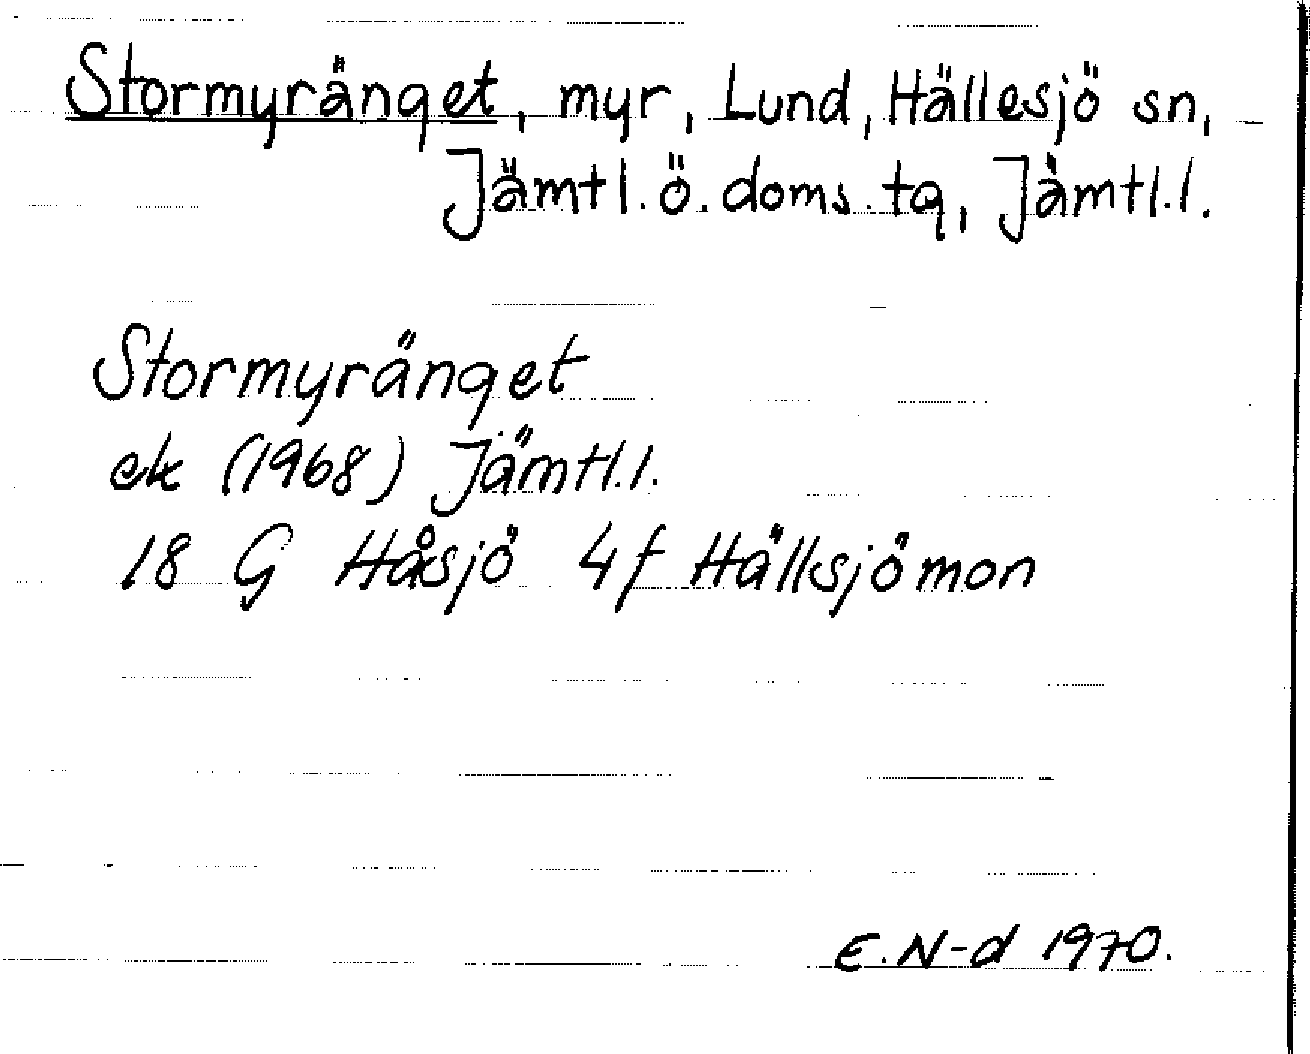 Stormyränget, myr, Lund, Hällesjö sn,
Jämtl. ö. doms. tg, Jämtl. l.
Stormyränget
ek (1968) Jämtl. l.
18 G Håsjö 4f Hällsjömon
E. N-d 1970.